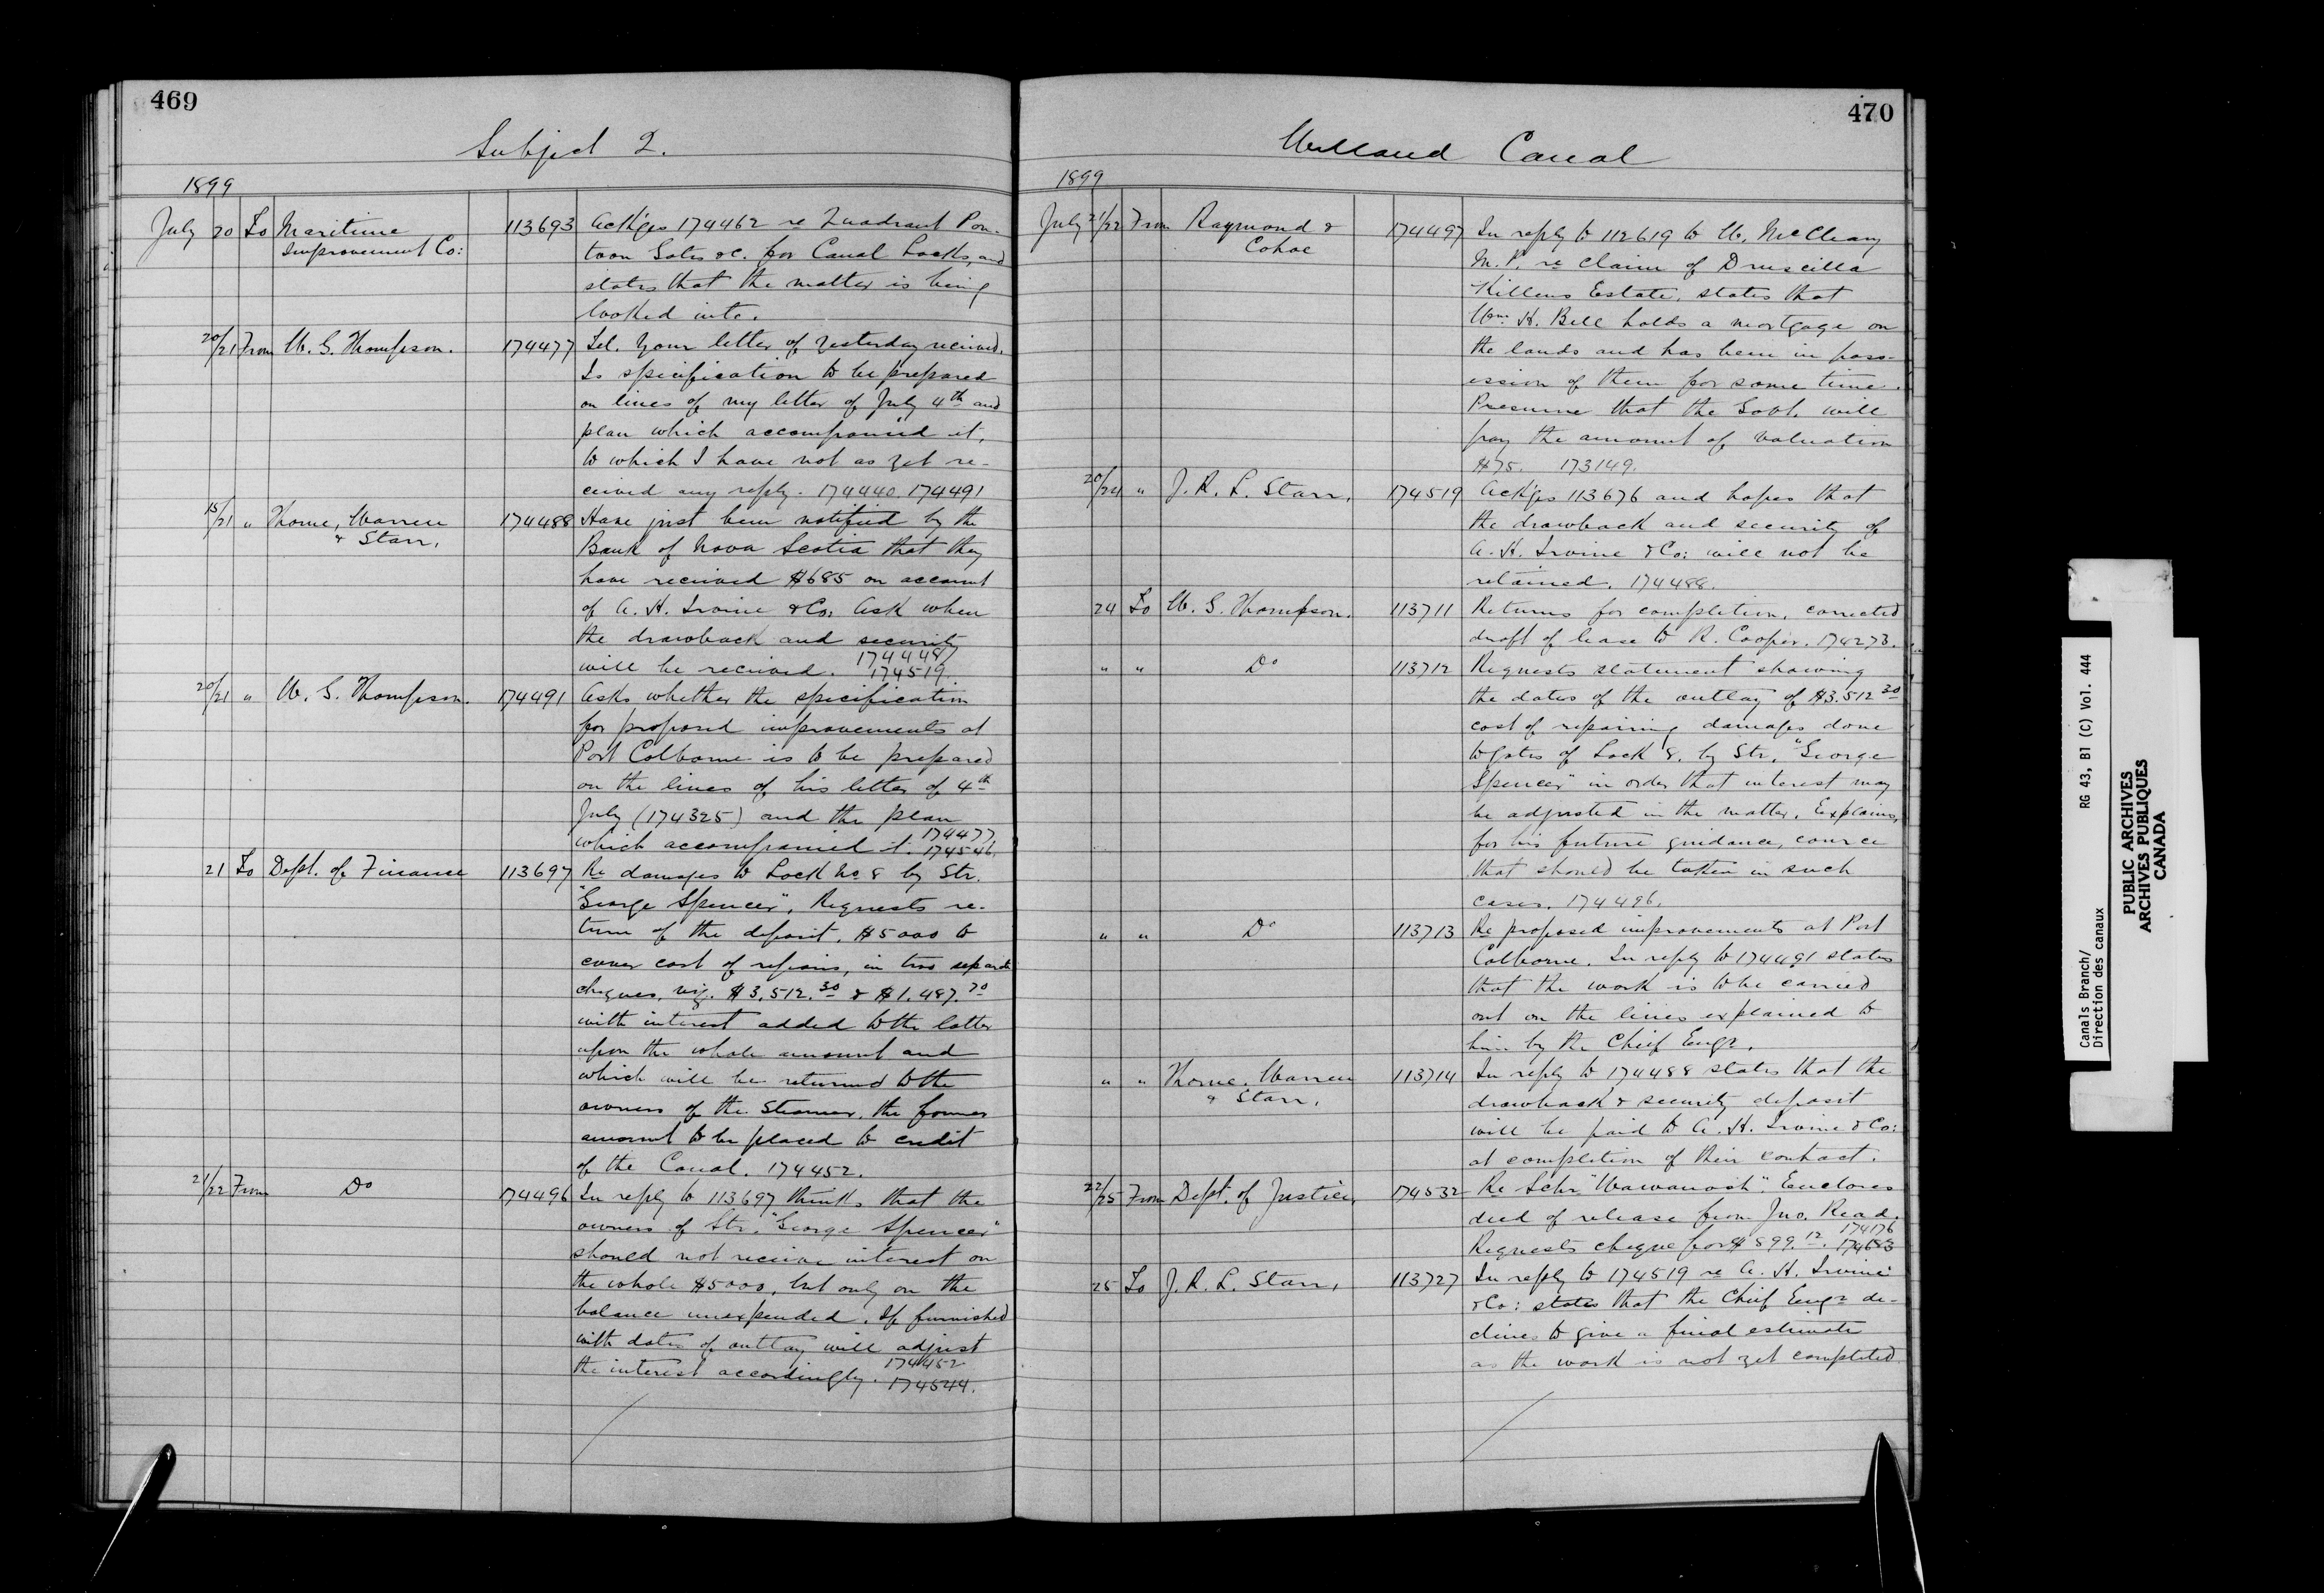 469
Subject 2.
1899
July 20 To Maritime 113693 Ackges 174462 re Quadrant Pon-
Improvement Co: toon Gates &c. for Canal Locks, and
states that the matter is being
looked into.
20/21 From W. G. Thompson. 174477 Tel. Your letter of yesterday received.
Is specification to be prepared
on lines of my letter of July 4th and
plan which accompanied it,
to which I have not as yet re-
ceived any reply. 174440. 174491
15/21 " Thorne, Warren 174488 Have just been notified by the
& Starr, Bank of Nova Scotia that they
have received $685 on account
of A. H. Irvine & Co. Ask when
the drawback and security
will be received. 174448
174519.
20/21 " W. G. Thompson. 174491 Asks whether the specification
for proposed improvements at
Port Colborne is to be prepared
on the lines of his letter of 4th
July (174325) and the plan
which accompanied it. 174477
174546.
21 To Dept. of Finance 113697 Re damages to Lock No 8 by Str.
"George Spencer", Requests re-
turn of the deposit, $5000 to
cover cost of repairs, in two separate
cheques, viz. $3,512.30 & $1,487.70
with interest added to the latter
upon the whole amount and
which will be returned to the
owners of the Steamer, the former
amount to be placed to credit
of the Canal. 174452.
21/22 From Do 174496 In reply to 113697 thinks that the
owners of Str. "George Spencer"
should not receive interest on
the whole $5000, but only on the
balance unexpended. If furnished
with dates of outlay will adjust
the interest accordingly. 174452
174544.
470
Welland Canal
1899
July 21/22 From Raymond & 174497 In reply to 112619 to W. McCleary
Cohoe M.P. re claim of Druscilla
Killens Estate, states that
Wm. H. Bell holds a mortgage on
the lands and has been in poss-
ession of them for some time.
Presume that the Govt. will
pay the amount of valuation
$75. 173149.
20/24 " J. R. L. Starr, 174519 Ackges 113676 and hopes that
the drawback and security of
A. H. Irvine & Co: will not be
retained. 174488.
24 To W. G. Thompson. 113711 Returns for completion, corrected
draft of lease to R. Cooper. 174273.
" " Do 113712 Requests statement showing
the dates of the outlay of $3.512 30
cost of repairing damages done
to gates of Lock 8, by Str. "George
Spencer" in order that interest may
be adjusted in the matter. Explains,
for his future guidance, course
that should be taken in such
cases. 174496.
" " Do 113713 Re proposed improvements at Port
Colborne. In reply to 174491 states
that the work is to be carried
out on the lines explained to
him by the Chief Engr.
" " Thorne, Warren 113714 In reply to 174488 states that the
& Starr, drawback & security deposit
will be paid to A. H. Irvine & Co:
at completion of their contract.
22/25 From Dept. of Justice, 174532 Re Schr "Wawanosh". Encloses
deed of release from Jno. Read.
Requests cheque for $899.12. 174176
25 To J. R. L. Starr, 113727 In reply to 174519 re A. H. Irvine
& Co: states that the Chief Engr de-
clines to give a final estimate
as the work is not yet completed
Canals Branch/
Direction des canaux
RG 43, B1 (C) Vol. 444
PUBLIC ARCHIVES
ARCHIVES PUBLIQUES
CANADA